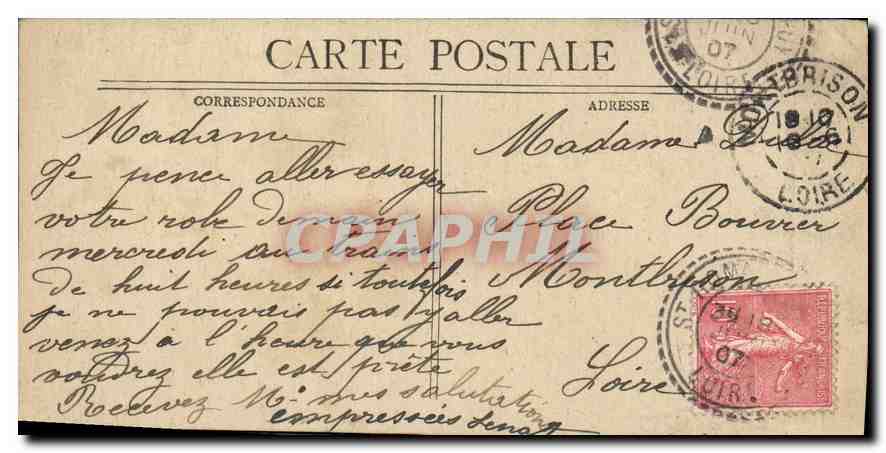 CARTE POSTALE
CORRESPONDANCE
Madame
Je pence aller essayer
votre robe demain
mercredi au trains
de huit heures si toutefois
je ne pouvais pas y aller
venez à l'heure que vous
voudrez elle est prête
Recevez Me mes salutations
empressées
ADRESSE
Madame
Place Bouvrer
Montbrison
Loire
JUIN
07
LOIRE
MONTBRISON
LOIRE
ST
07
LOIRE
CPAPHIL